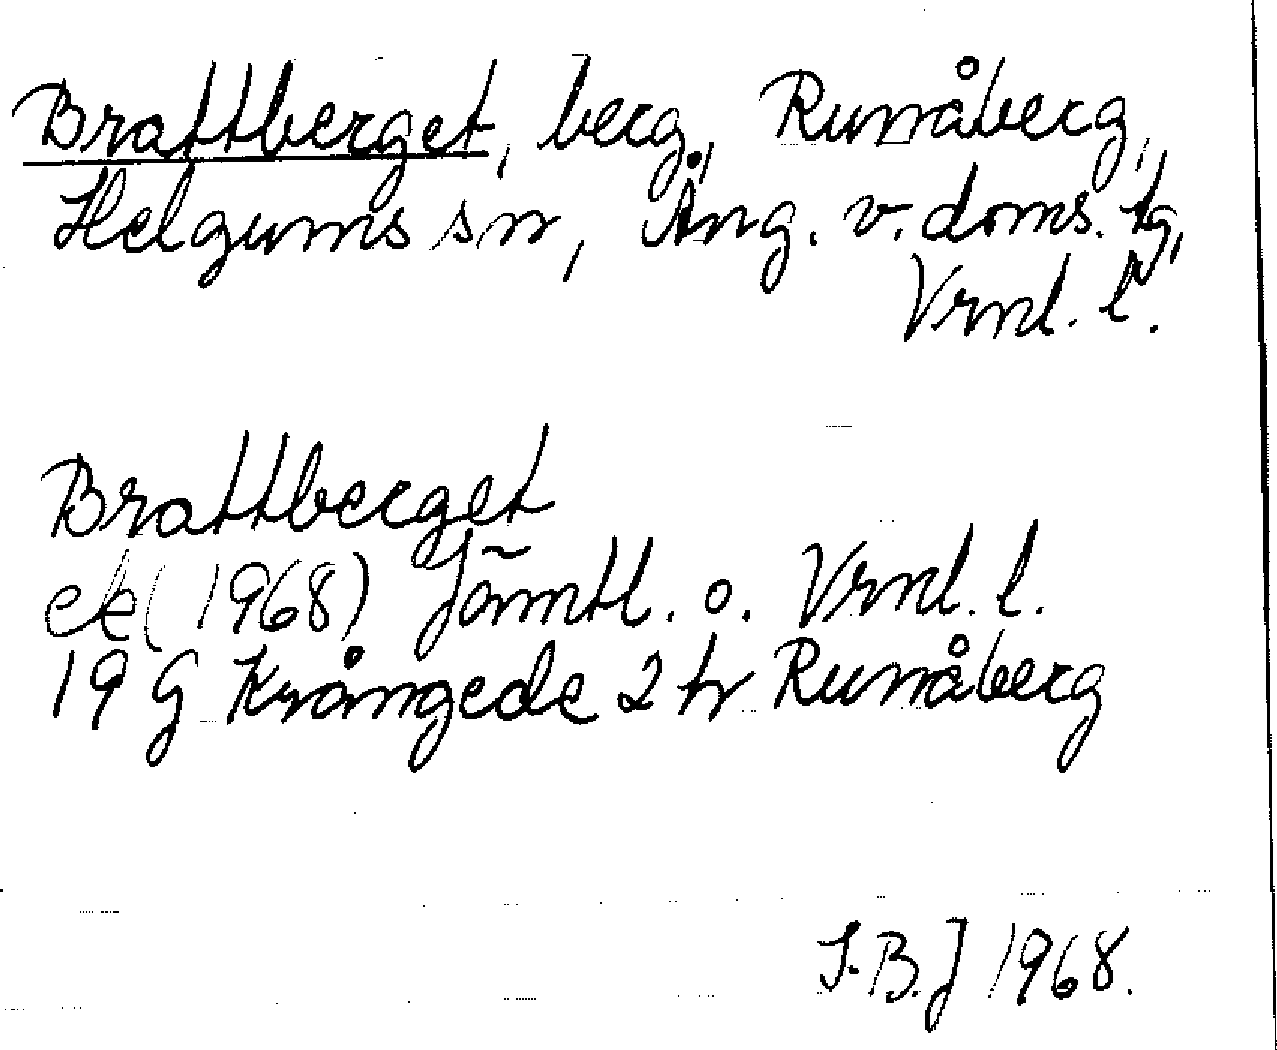 Brattberget, berg, Runåberg,
Helgums sn, Ång. v. doms. tg,
Vrnl. l.
Brattberget
ek (1968) Jämtl. o. Vrnl. l.
19 G Krångede 2 tr Runåberg
S.B.J 1968.